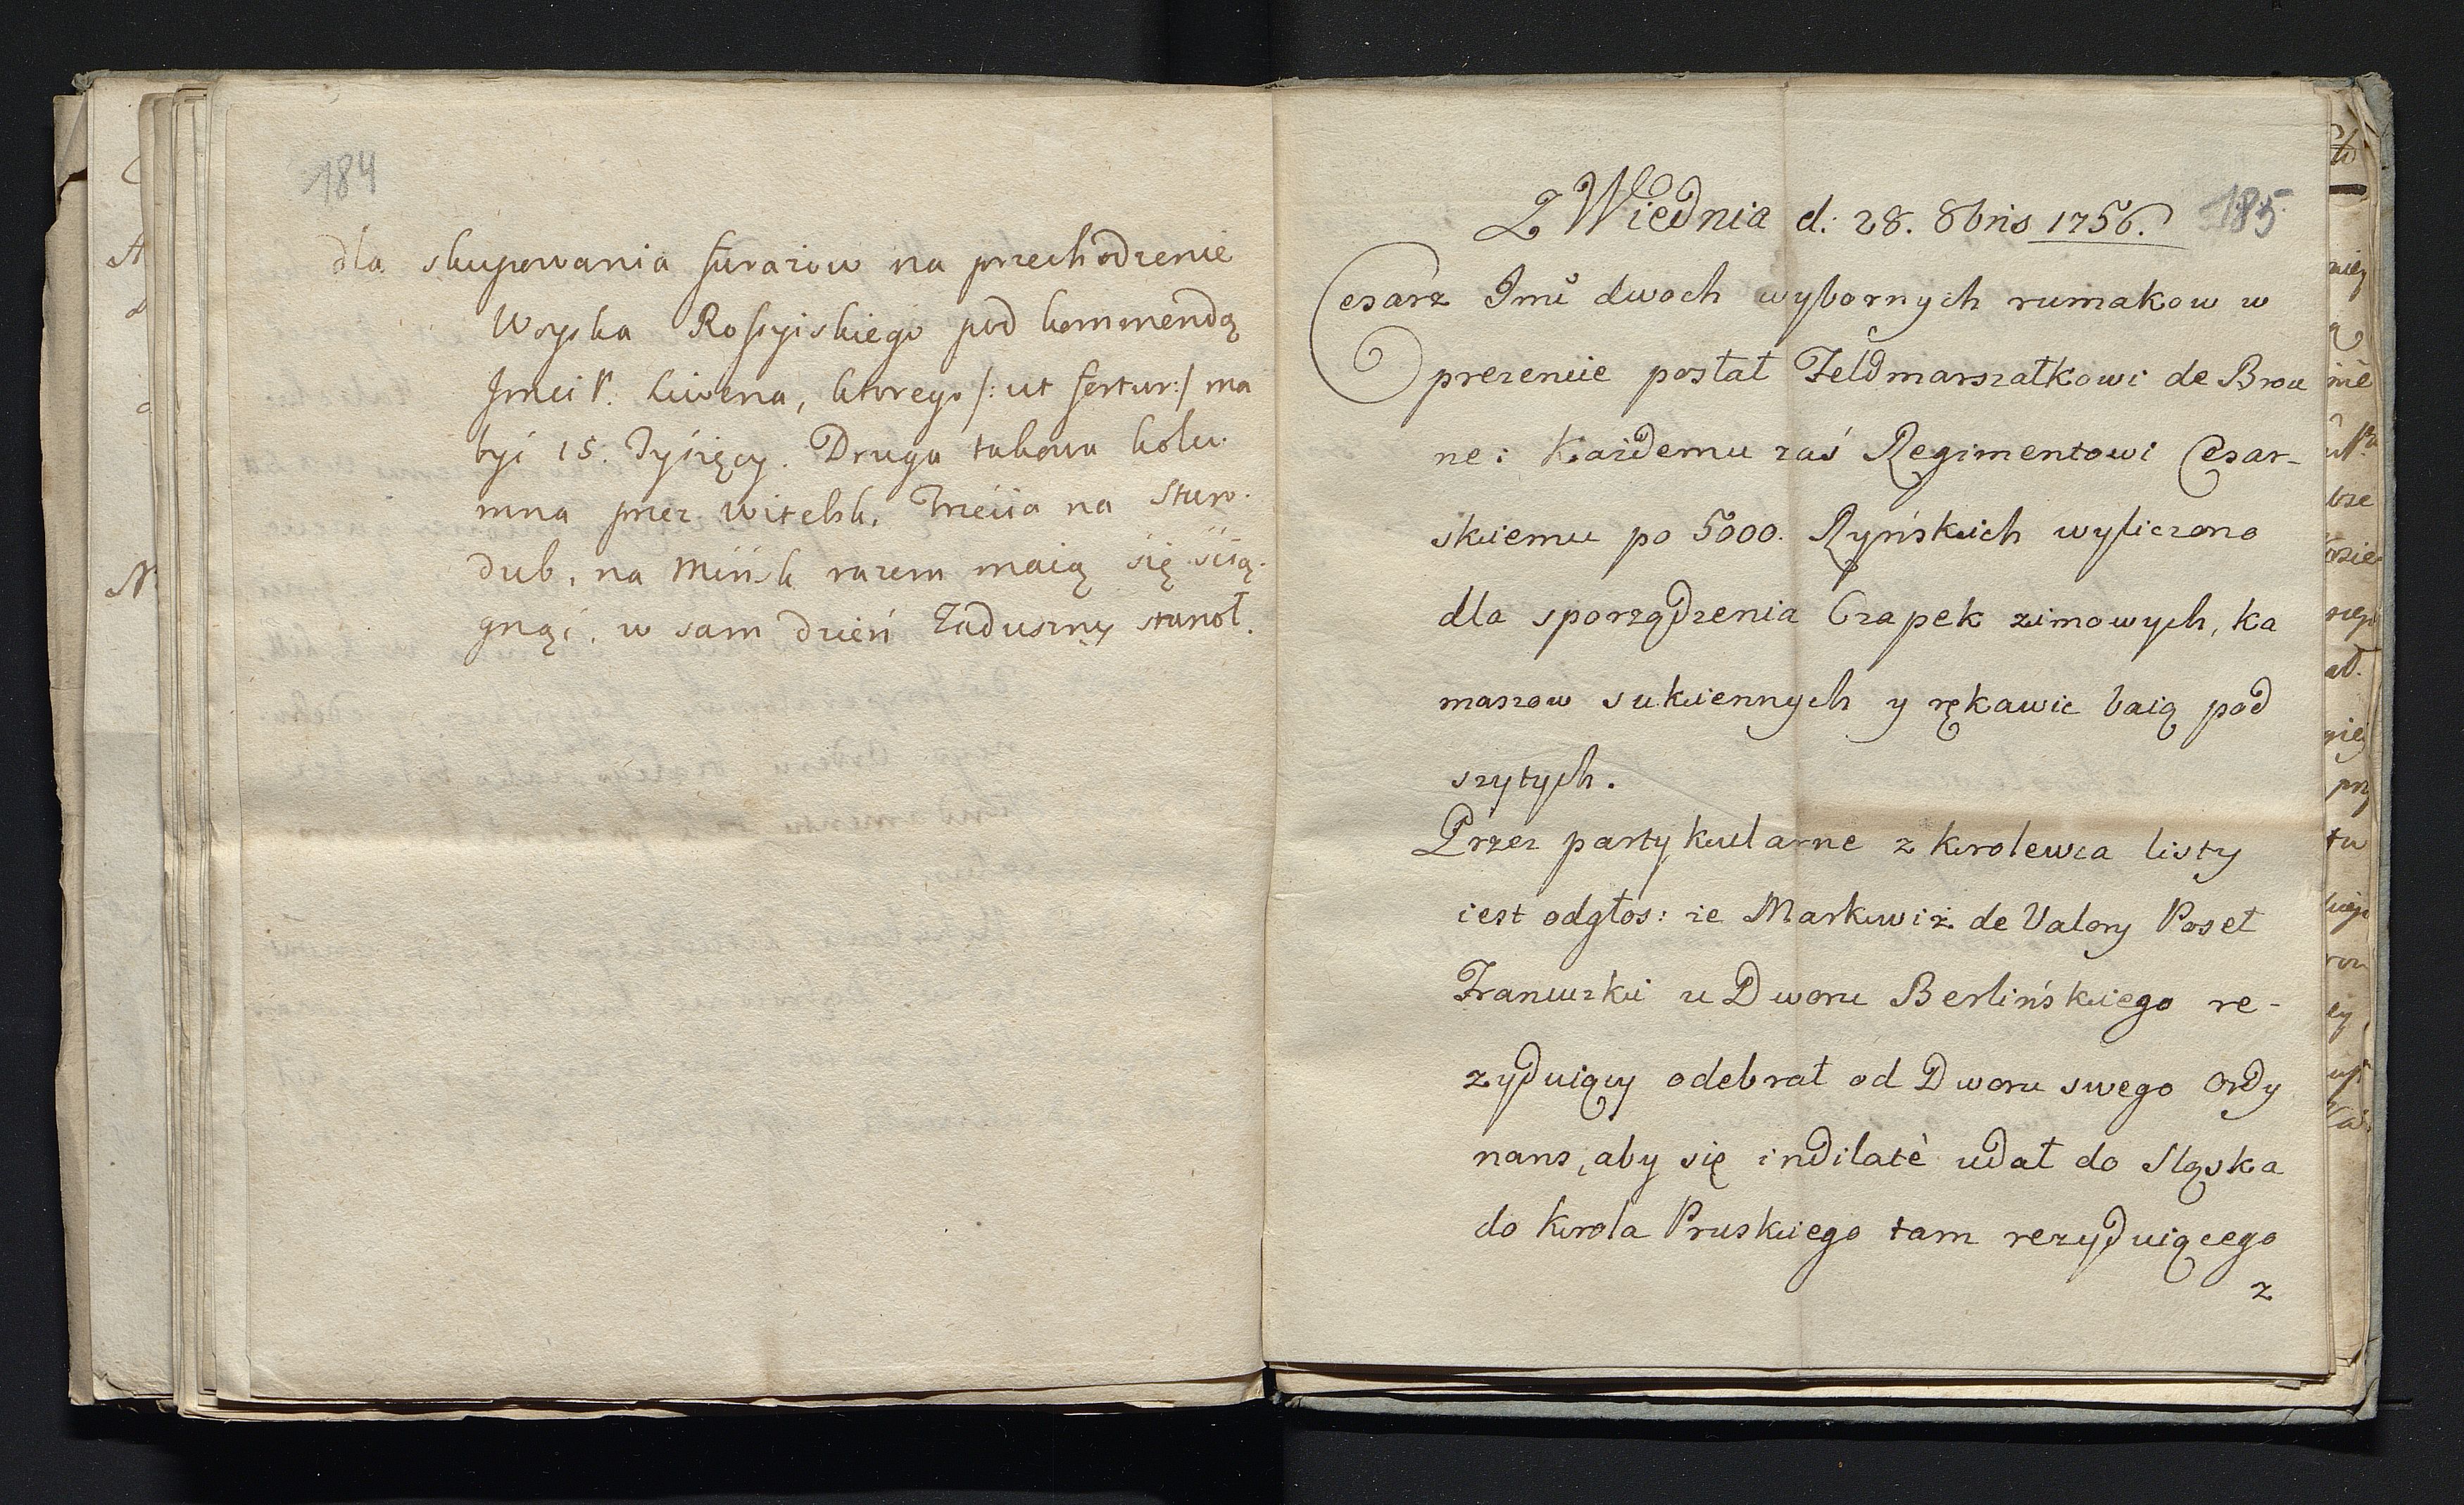 184
dla skupowania furazow na przechodzenie
Woyska Rossyiskiego pod kommendą
Jmci P. Liwena, ktorego /: ut fertur :/ ma
byi 15. Tyśięcy. Druga takowa kolu-
mna przez Witebsk. Trzecia na Staro-
dub, na Mińsk razem maią się sćią-
gnąć, w sam dzień Zaduszny stanoł.
185
Z Wiednia d: 28. 8bris 1756.
Cesarz Jmć dwoch wybornych rumakow w
prezencie posłał Feldmarszałkowi de Brou
ne: Każdemu zaś Regimentowi Cesar-
skiemu po 5000. Ryńskich wyliczono
dla sporządzenia Czapek zimowych, ka
maszow sukiennych y rękawic baią pod
szytych.
Przez partykularne z Krolewca listy
iest odgłos: ze Markwiż de Valory Poseł
Francuzki u Dworu Berlińskiego re-
zyduiący odebrał od Dworu swego Ordy
nans, aby się indilatè udał do Sląska
do Krola Pruskiego tam rezyduiącego
z